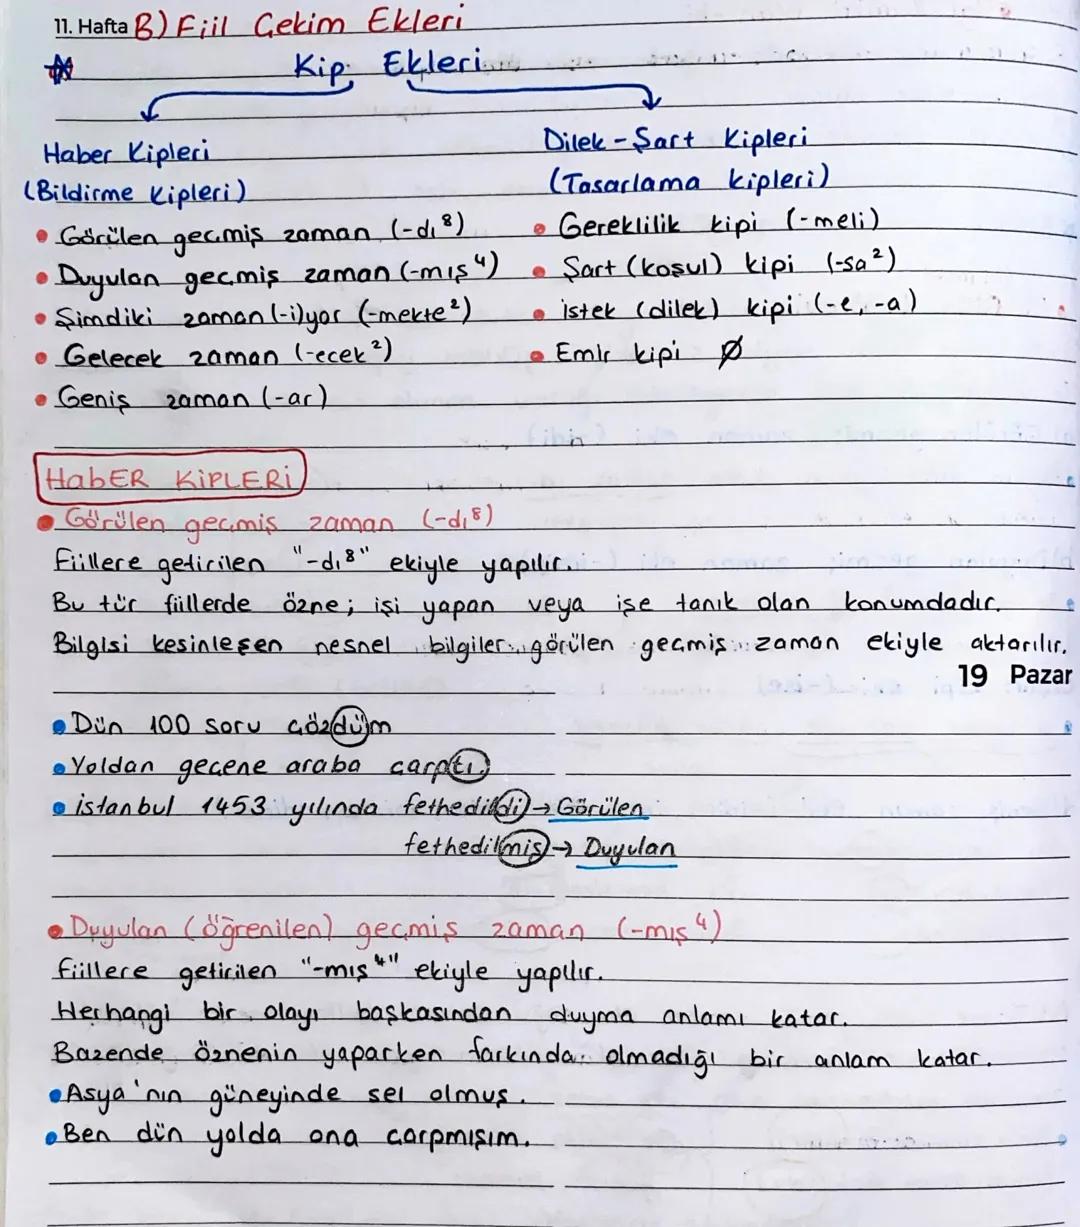 11. Hafta B) Fiil Çekim Ekleri
Kip Ekleri
Haber Kipleri
(Bildirme Kipleri)
• Görülen geçmiş zaman (-dı⁸)
• Duyulan geçmiş zaman (-mış⁴)
• Şimdiki zaman (-i)yor (-mekte²)
• Gelecek zaman (-ecek²)
• Geniş zaman (-ar)
Dilek-Şart Kipleri
(Tasarlama kipleri)
• Gereklilik kipi (-meli)
• Şart (koşul) kipi (-sa²)
• istek (dilek) kipi (-e, -a)
• Emir kipi Ø
HabER KiPLERi
• Görülen geçmiş zaman (-dı⁸)
Fiillere getirilen "-dı⁸" ekiyle yapılır.
Bu tür fiillerde özne; işi yapan veya işe tanık olan konumdadır.
Bilgisi kesinleşen nesnel bilgiler görülen geçmiş zaman ekiyle aktarılır.
19 Pazar
• Dün 100 soru çözdüm
• Yoldan geçene araba çarptı.
• istanbul 1453 yılında fethedildi → Görülen
fethedilmiş → Duyulan
• Duyulan (öğrenilen) geçmiş zaman (-mış⁴)
Fiillere getirilen "-mış⁴" ekiyle yapılır.
Herhangi bir olayı başkasından duyma anlamı katar.
Bazende öznenin yaparken farkında olmadığı bir anlam katar.
• Asya'nın güneyinde sel olmuş.
• Ben dün yolda ona çarpmışım.